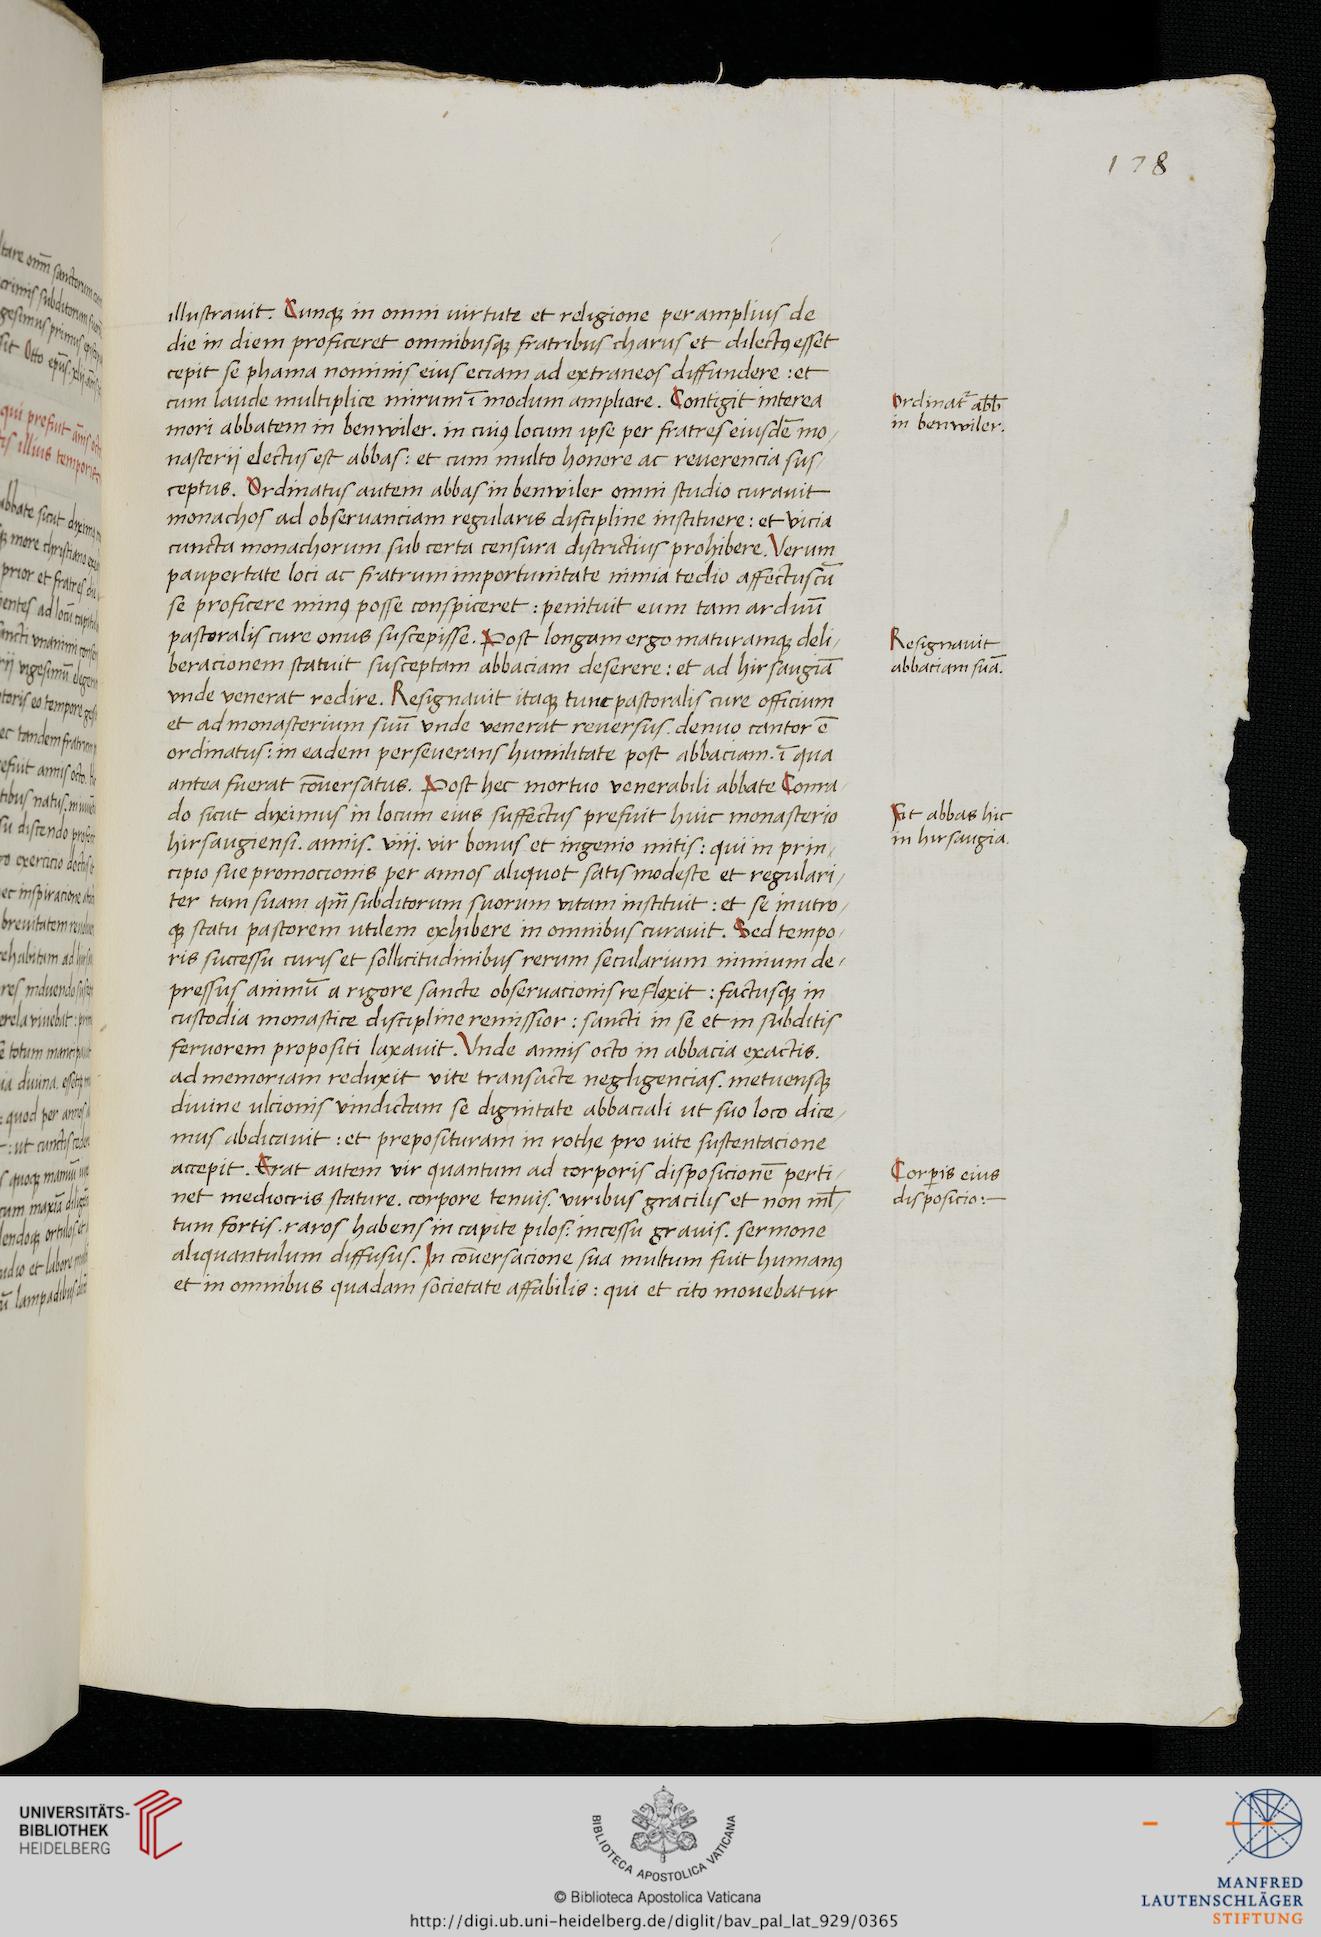 178
illustravit. Cunq; in omni virtute et religione peramplius de
die in diem proficeret omnibusq; fratribus charus et dilectꝯ esset
cepit se phama nominis eius eciam ad extraneos diffundere : et
cum laude multiplice mirum ī modum ampliare. Contigit interea
mori abbatem in benwiler. in cuiꝯ locum ipse per fratres eiusdē mo/
nasterij electus est abbas : et cum multo honere ac reverencia sus/
ceptus. Ordinatus autem abbas in benwiler omni studio curavit
monachos ad observanciam regularis discipline instituere : et vicia
cuncta monachorum sub certa censura districtius prohibere. Verum
paupertate loci ac fratrum importunitate nimia tedio affectus cū
se proficere minꝯ posse conspiceret : penituit eum tam arduū
pastoralis cure onus suscepisse. Post longam ergo maturamq; deli/
beracionem statuit susceptam abbaciam deserere : et ad hirsaugiā
vnde venerat redire. Resignavit itaq; tunc pastoralis cure officium
et ad monasterium suū vnde venerat reversus. denuo cantor ē
ordinatus : in eadem perseverans humilitate post abbaciam. ī qua
antea fuerat cōversatus. Post hec mortuo venerabili abbate Conra/
do sicut diximus in locum eius suffectus prefuit huic monasterio
hirsaugiensi. annis. viij. vir bonus et ingenio mitis : qui in prin/
cipio sue promocionis per annos aliquot satis modeste et regulari/
ter tam suam qm̄ subditorum suorum vitam instituit : et se in utro/
q; statu pastorem utilem exhibere in omnibus curavit. Sed tempo/
ris successu curis et sollicitudinibus rerum secularium nimium de/
pressus animū a rigore sancte observacionis reflexit : factusq; in
custodia monastice discipline remissior : sancti in se et in subditis
fervorem propositi laxavit. Vnde annis octo in abbacia exactis.
ad memoriam reduxit vite transacte negligencias. metuensq;
divine ulcionis vindictam se dignitate abbaciali ut suo loco dice/
mus abdicavit : et preposituram in rothe pro vite sustentacione
accepit. Erat autem vir quantum ad corporis disposicionē perti/
net mediocris stature. corpore tenuis. viribus gracilis et non ml̄/
tum fortis. raros habens in capite pilos : incessu gravis. sermone
aliquantulum diffusus. In cōversacione sua multum fuit humanꝯ
et in omnibus quadam societate affabilis : qui et cito movebatur
Ordinat᷑ abb̄
in benwiler.
Resignavit
abbatiam suā.
Fit abbas hic
in hirsaugia.
Corꝑis eius
disposicio :—
UNIVERSITÄTS-
BIBLIOTHEK
HEIDELBERG
BIBLIOTECA APOSTOLICA VATICANA
© Biblioteca Apostolica Vaticana
http://digi.ub.uni-heidelberg.de/diglit/bav_pal_lat_929/0365
MANFRED
LAUTENSCHLÄGER
STIFTUNG